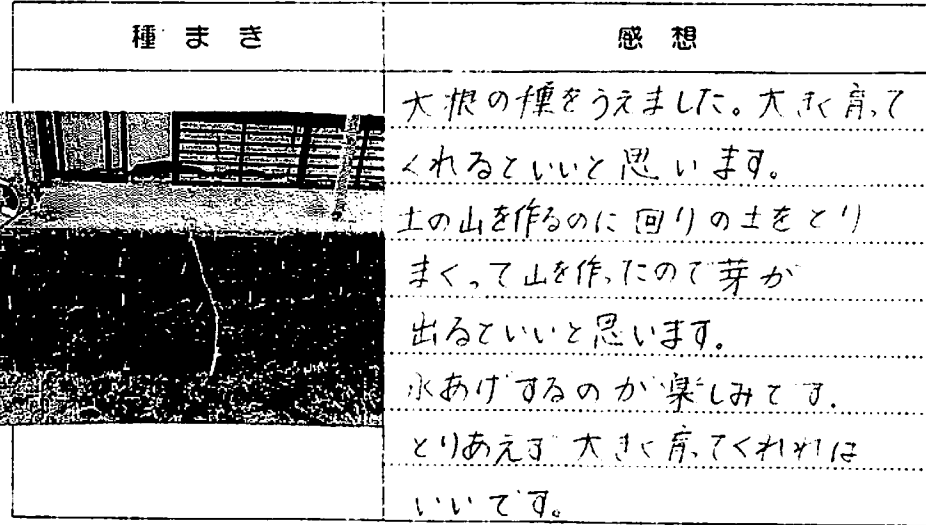 種まき
感想
大根の種をうえました。大きく育って
くれるといいと思います。
土の山を作るのに回りの土をとり
まくって山を作ったので芽が
出るといいと思います。
水あげするのが楽しみです。
とりあえず大きく育ってくれれば
いいです。